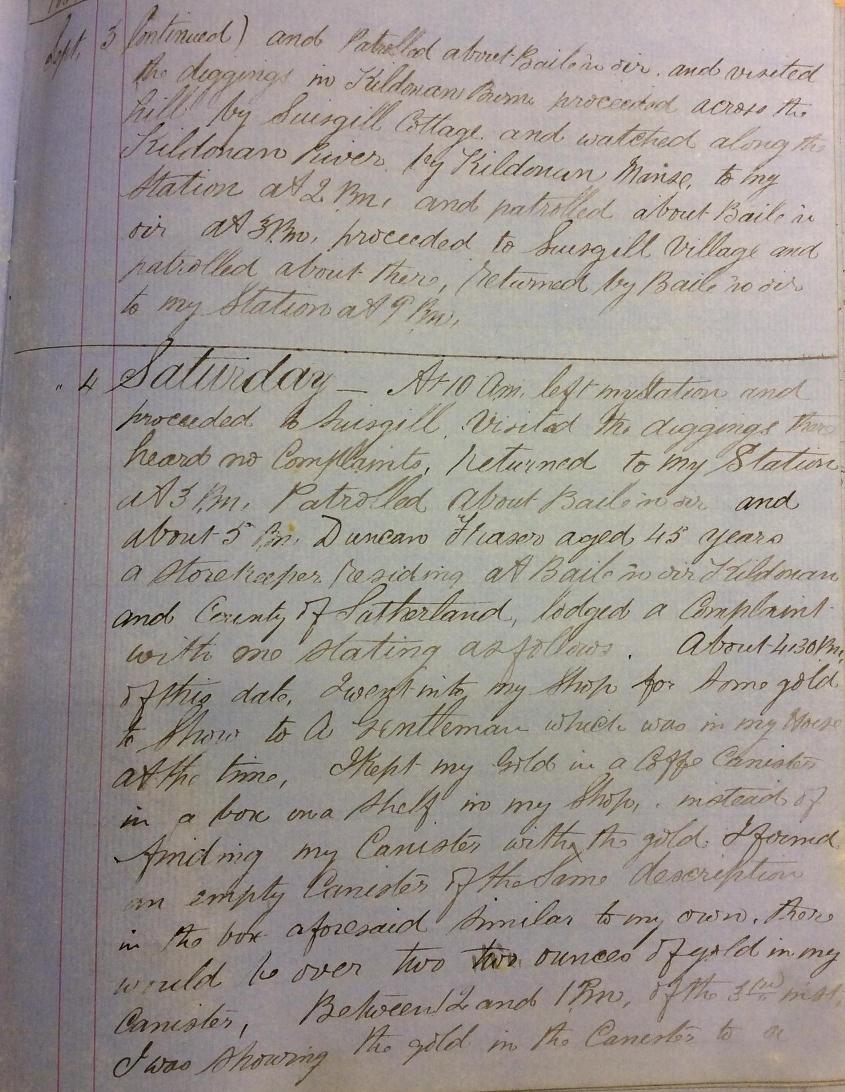 Sept. 3 Continued) and Patrolled about Baile'n oir. and visited
the diggings in Kildonan Burn proceeded across the
hill by Suisgill Cottage and watched along the
Kildonan River by Kildonan Manse, to my
Station at 2 Pm, and patrolled about Baile'n
oir at 3 Pm, proceeded to Suisgill Village and
patrolled about there, returned by Baile'n oir
to my Station at 9 Pm,
" 4 Saturday — At 10 Am, left my Station and
proceeded to Suisgill. Visited the diggings there
heard no Complaints, returned to my Station
at 3 Pm. Patrolled about Baile'n oir and
about 5 Pm. Duncan Fraser aged 45 years
a storekeeper residing at Baile'n oir Kildonan
and County of Sutherland, lodged a Complaint
with me stating as follows. About 4.30 Pm,
of this date, I went into my Shop for some gold
to Show to A Gentleman which was in my House
at the time, I Kept my Gold in a Coffe Canister
in a box on a Shelf in my Shop, instead of
finding my Canister with the gold I found
an empty Canister of the Same description
in the box aforesaid similar to my own. there
would be over two ounces of gold in my
Canister, Between 12 and 1 Pm, of the 3rd inst,
I was Showing the gold in the Canister to a